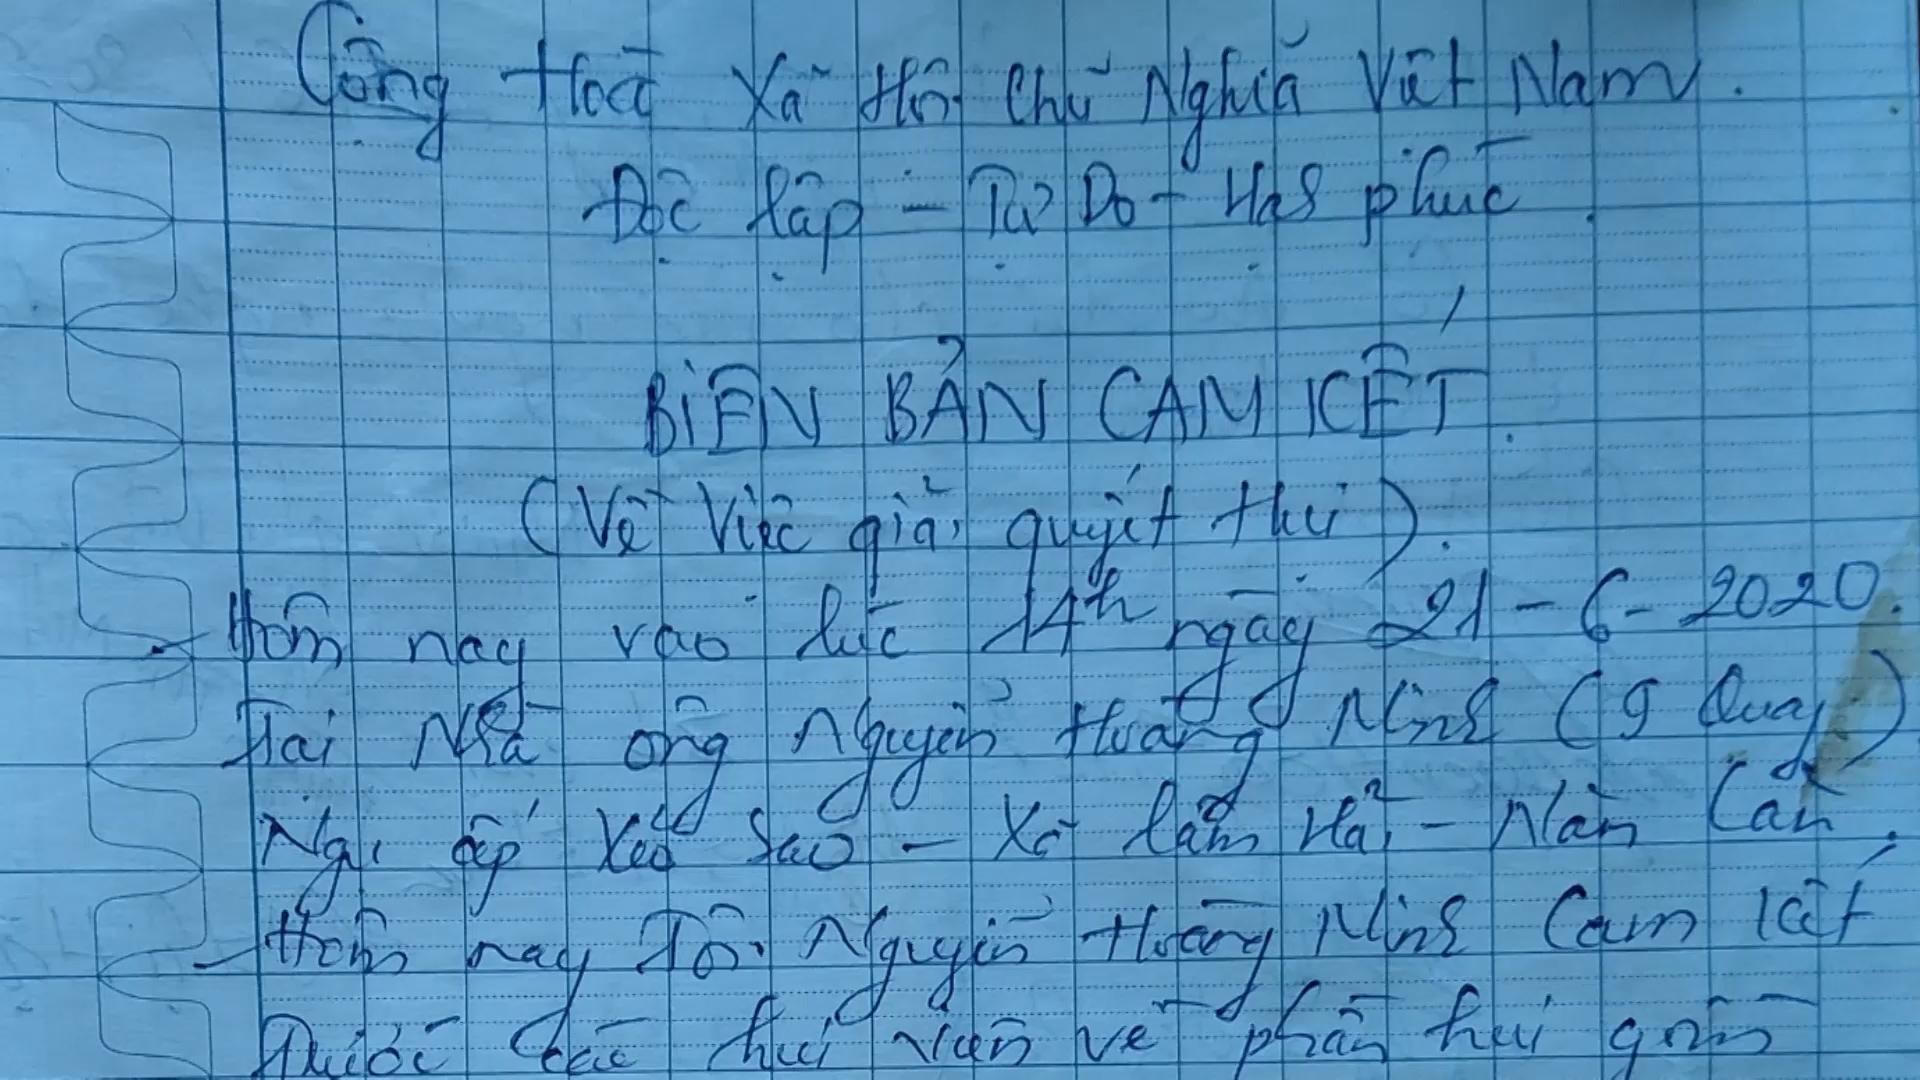 Cộng Hoà Xã Hội Chủ Nghĩa Việt Nam.
Độc lập - Tự Do - Hạnh phúc
BIÊN BẢN CAM KẾT.
(Về Việc giải quyết hụi).
Hôm nay vào lúc 14h ngày 21-6-2020.
Tại Nhà ông Nguyễn Hoàng Ninh (9 Quay)
Ngụ ấp Xẻo Sao - Xã Lâm Hải - Năm Căn.
- Hôm nay Tôi Nguyễn Hoàng Ninh Cam kết
Trước các hụi viên về phần hụi gồm